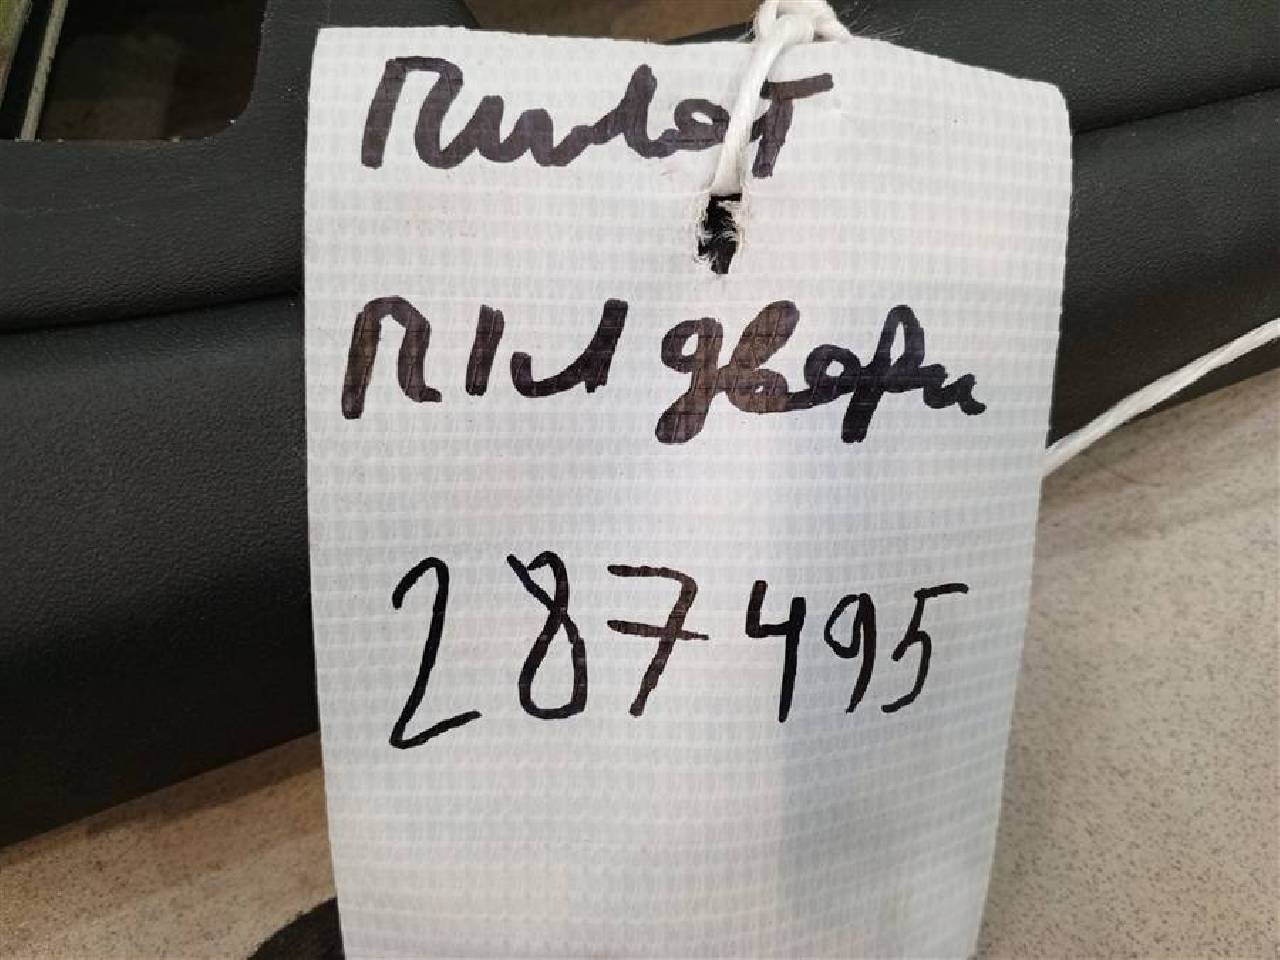 Пилот
П/Л двери
287495